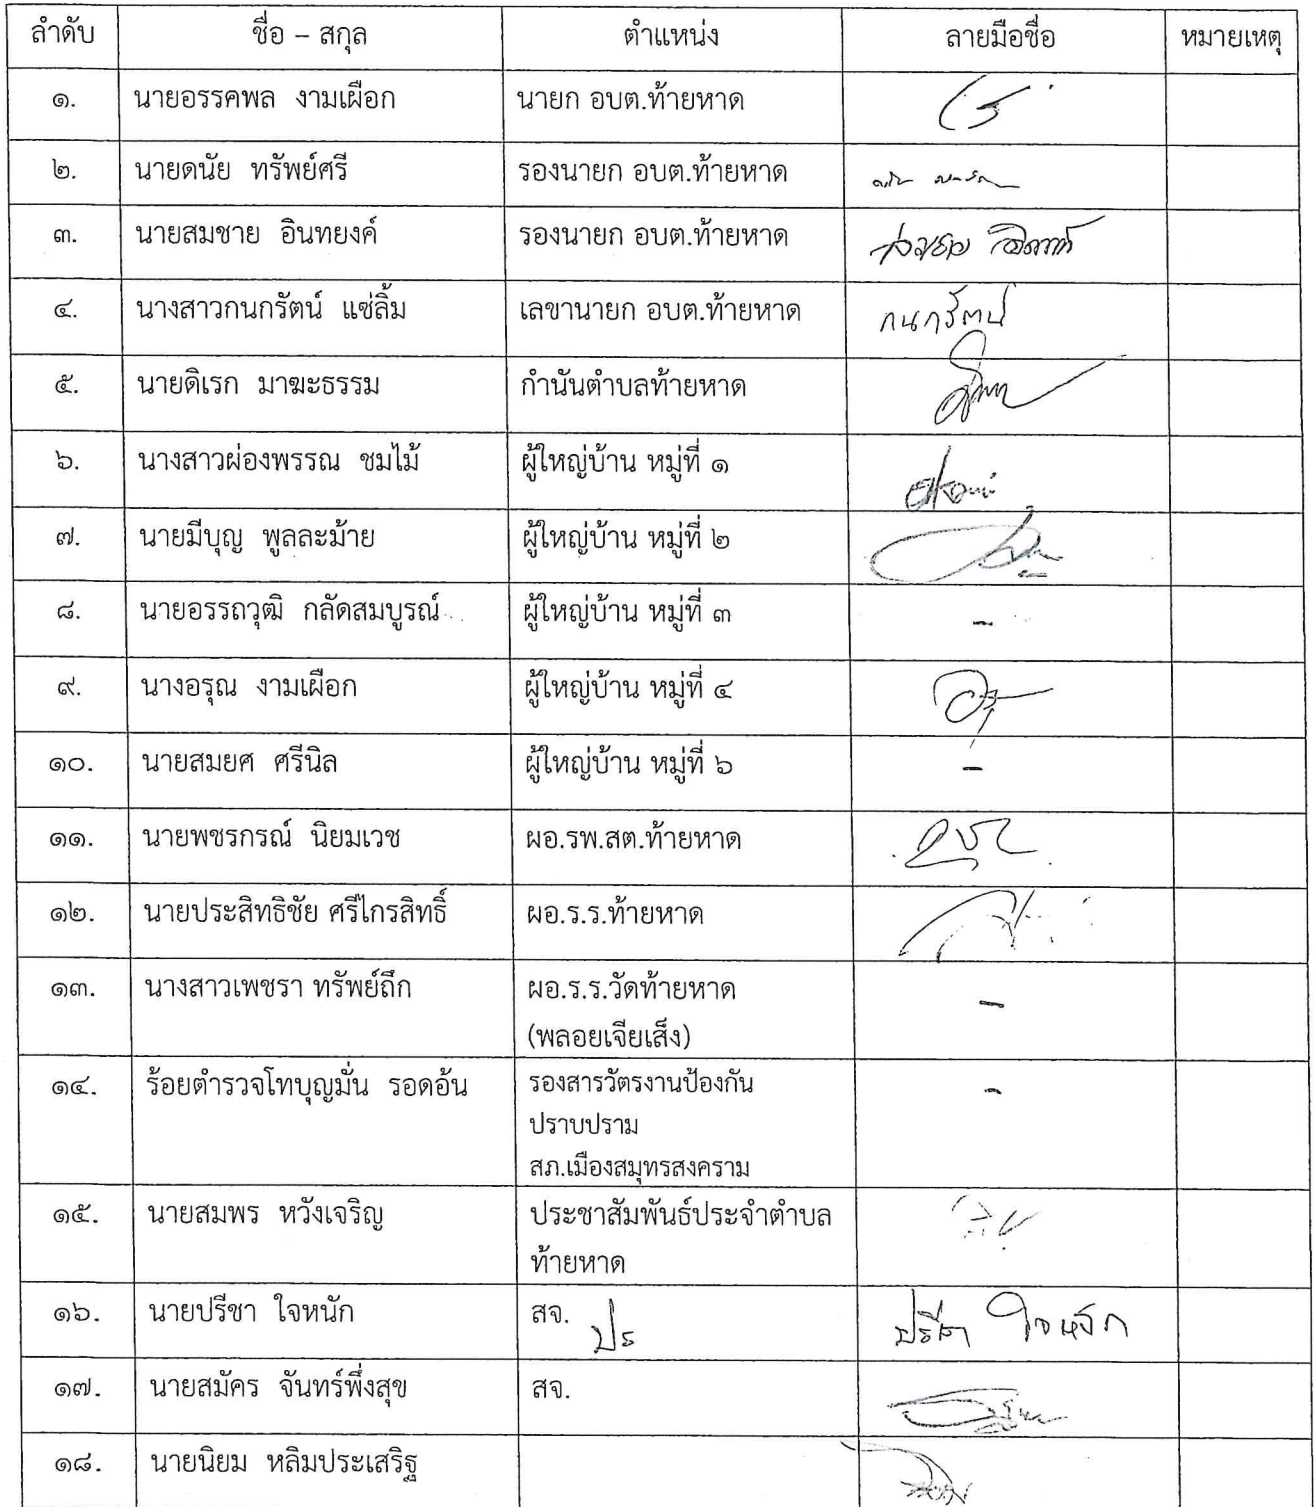 ลำดับ ชื่อ – สกุล ตำแหน่ง ลายมือชื่อ หมายเหตุ
๑. นายอรรคพล งามเผือก นายก อบต.ท้ายหาด
๒. นายดนัย ทรัพย์ศรี รองนายก อบต.ท้ายหาด
๓. นายสมชาย อินทยงค์ รองนายก อบต.ท้ายหาด
๔. นางสาวกนกรัตน์ แซ่ลิ้ม เลขานายก อบต.ท้ายหาด กนกรัตน์
๕. นายดิเรก มาฆะธรรม กำนันตำบลท้ายหาด
๖. นางสาวผ่องพรรณ ชมไม้ ผู้ใหญ่บ้าน หมู่ที่ ๑
๗. นายมีบุญ พูลละม้าย ผู้ใหญ่บ้าน หมู่ที่ ๒
๘. นายอรรถวุฒิ กลัดสมบูรณ์ ผู้ใหญ่บ้าน หมู่ที่ ๓ -
๙. นางอรุณ งามเผือก ผู้ใหญ่บ้าน หมู่ที่ ๔
๑๐. นายสมยศ ศรีนิล ผู้ใหญ่บ้าน หมู่ที่ ๖ -
๑๑. นายพชรกรณ์ นิยมเวช ผอ.รพ.สต.ท้ายหาด
๑๒. นายประสิทธิชัย ศรีไกรสิทธิ์ ผอ.ร.ร.ท้ายหาด
๑๓. นางสาวเพชรา ทรัพย์ถึก ผอ.ร.ร.วัดท้ายหาด -
(พลอยเจียเส็ง)
๑๔. ร้อยตำรวจโทบุญมั่น รอดอ้น รองสารวัตรงานป้องกัน -
ปราบปราม
สภ.เมืองสมุทรสงคราม
๑๕. นายสมพร หวังเจริญ ประชาสัมพันธ์ประจำตำบล
ท้ายหาด
๑๖. นายปรีชา ใจหนัก สจ. ปร ปรีชา ใจหนัก
๑๗. นายสมัคร จันทร์พึ่งสุข สจ.
๑๘. นายนิยม หลิมประเสริฐ